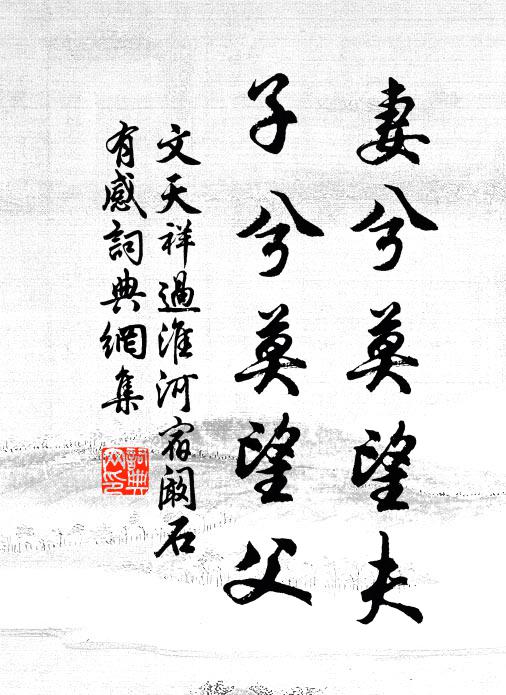 妻兮莫望夫
子兮莫望父
文天祥過淮河宿阚石
有感詞典網集